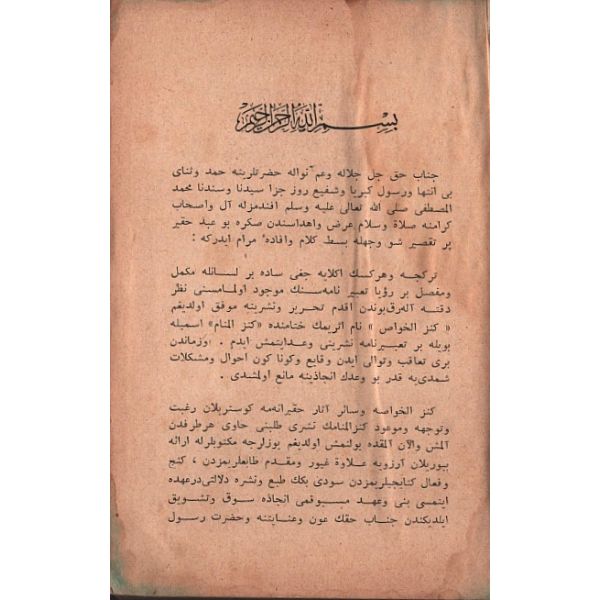 بسم الله الرحمن الرحيم
جناب حق جل جلاله وعم نواله حضرتلرينه حمد وثنای
بی انتها ورسول كبريا وشفيع روز جزا سيدنا وسندنا محمد
المصطفى صلى الله تعالى عليه وسلم افندمزله آل واصحاب
كرامنه صلاة وسلام عرض واهداسندن صكره بو عبد حقير
پر تقصير شو وجهله بسط كلام وافادهٔ مرام ايدركه :
تركجه وهركسك اكلايه جغی ساده بر لسانله مكمل
ومفصل بر رؤيا تعبير نامه‌سنك موجود اولمامسنی نظر
دقته آله‌رق بوندن اقدم تحرير ونشرينه موفق اولديغم
« كنز الخواص » نام اثريمك ختامنده «كنز المنام» اسميله
بويله بر تعبيرنامه نشرينی وعد ايتمش ايدم . اوزماندن
بری تعاقب وتوالی ايدن وقايع وكونا كون احوال ومشكلات
شمدی‌يه قدر بو وعدك انجازينه مانع اولمشدی .
كنز الخواصه وسائر آثار حقيرانه‌مه كوستريلان رغبت
وتوجهه وموعود كنز المنامك نشری طلبنی حاوی هر طرفدن
آلمش والآن آلمقده بولنمش اولديغم يوزلرجه مكتوبلرله ارائه
بيوريلان آرزويه علاوةً غيور ومقدم طابعلريمزدن ، كنج
وفعال كتابجيلريمزدن سودی بكك طبع ونشره دلالتی درعهده
ايتمسی بنی وعهد مسبوقمی انجازه سوق وتشويق
ايلديكندن جناب حقك عون وعنايتنه وحضرت رسول